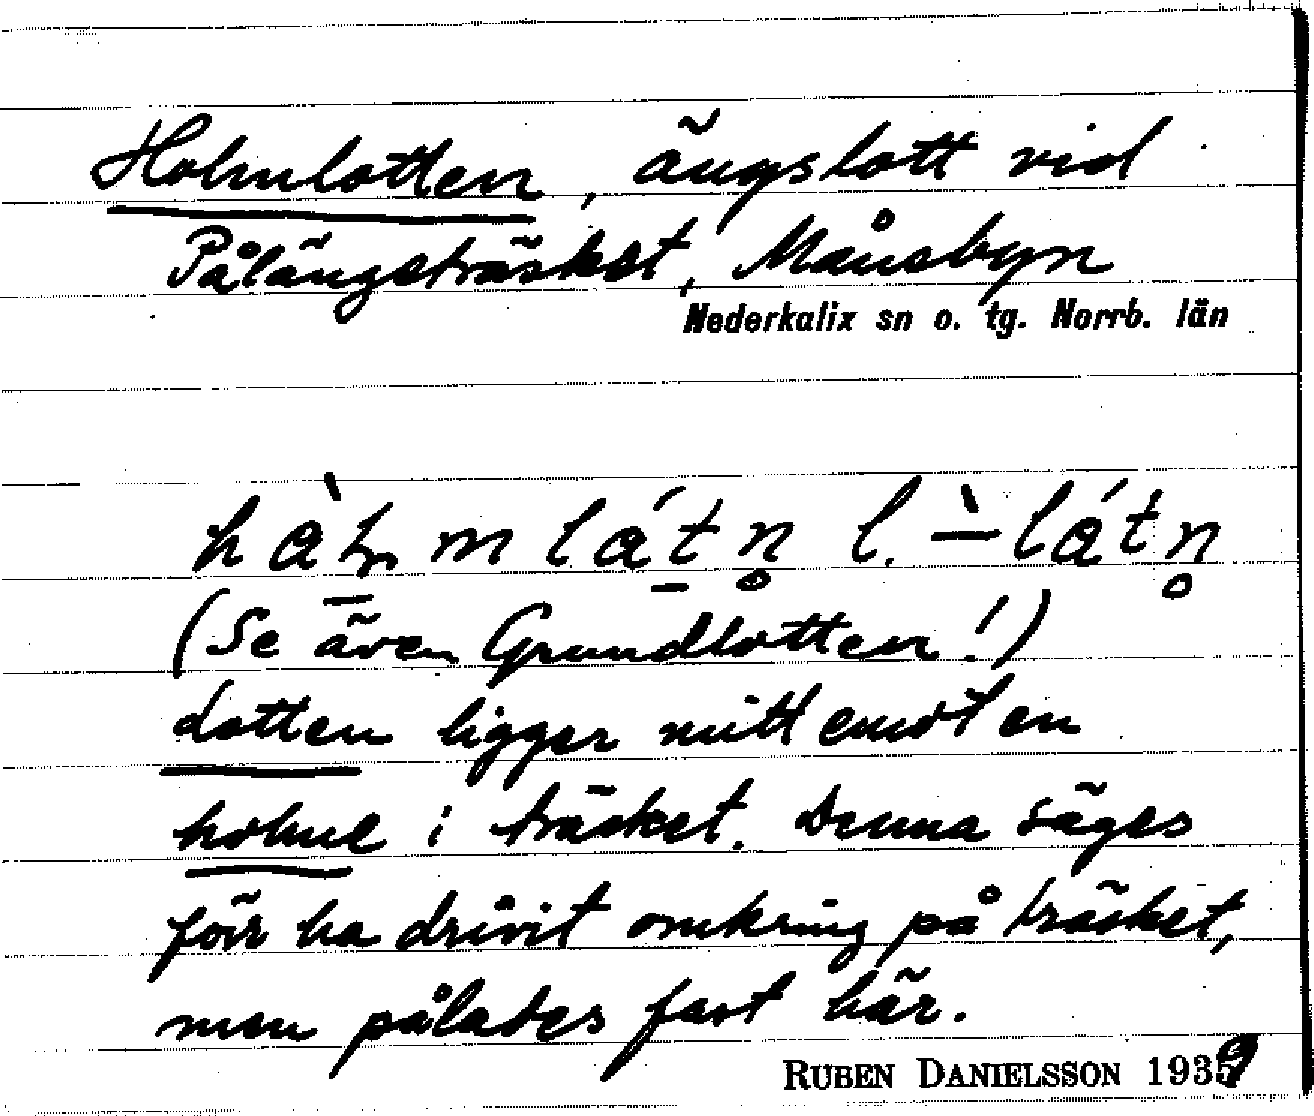 Holmlotten, ängslott vid
Pålängeträsket, Månsbyn
Nederkalix sn o. tg. Norrb. län
(Se även Grundlotten!)
Lotten ligger mitt emot en
holme i träsket. Denna säges
förr ha drivit omkring på träsket,
men pålades fast här.
RUBEN DANIELSSON 1939